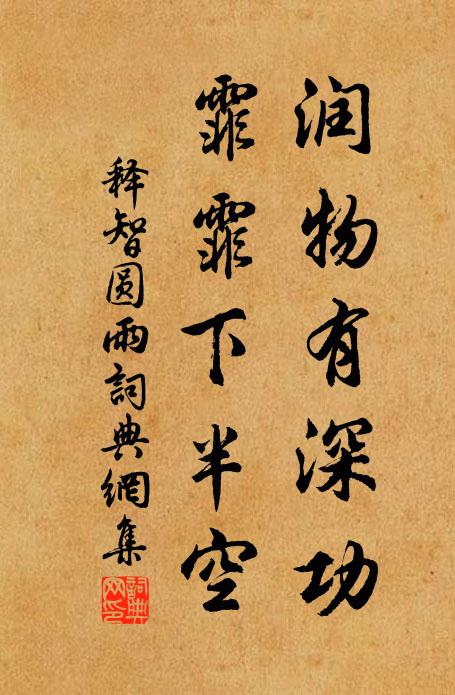 润物有深功
霏霏下半空
释智圆雨詞典網集
詞典
网印